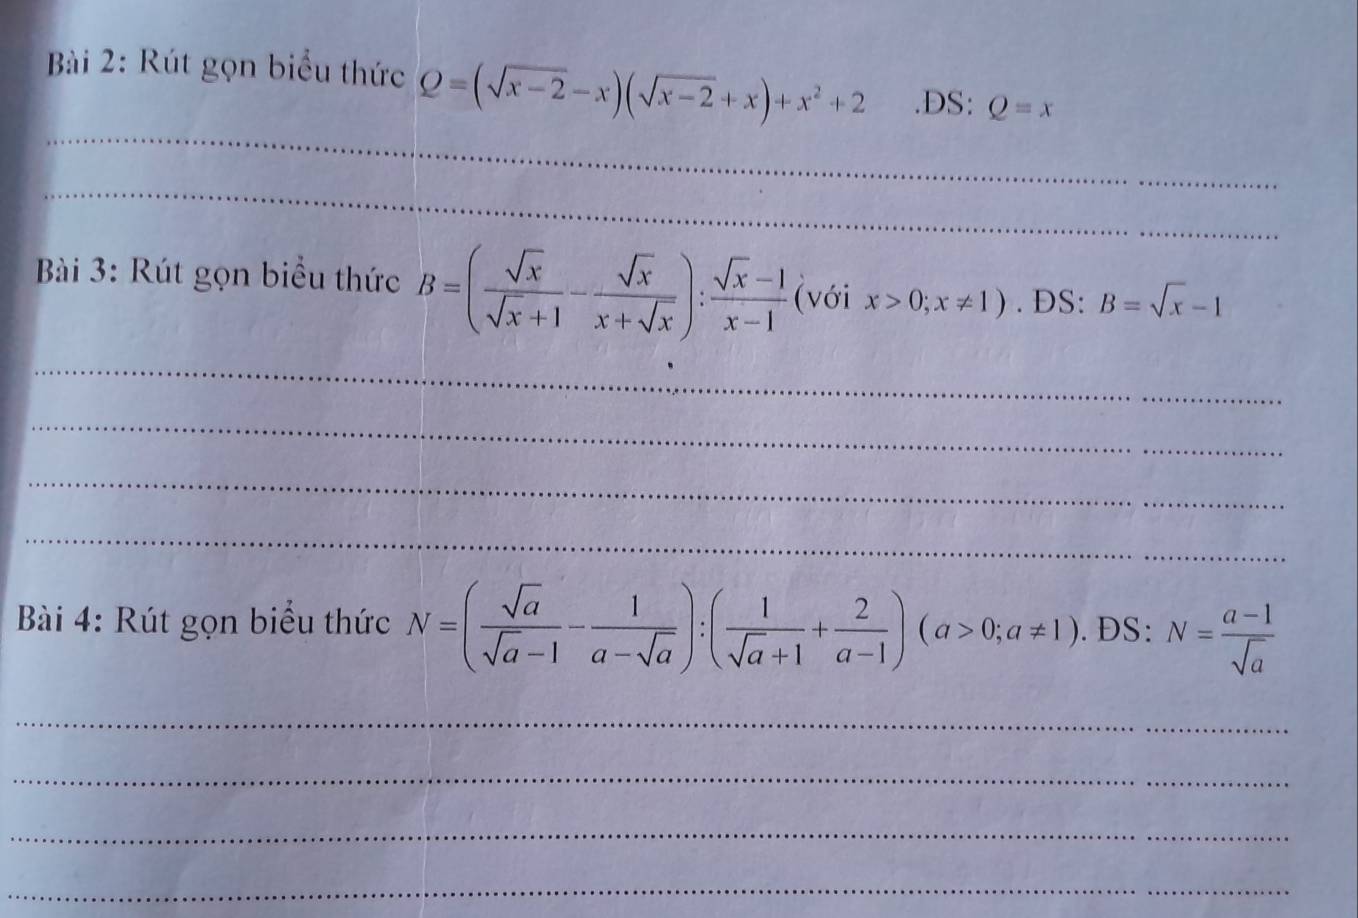 Bài 2: Rút gọn biểu thức Q = (√(x−2) − x)(√(x−2) + x) + x² + 2 .ĐS: Q = x
Bài 3: Rút gọn biểu thức B = (√x/(√x+1) − √x/(x+√x)) : (√x−1)/(x−1) (với x > 0; x ≠ 1) . ĐS: B = √x − 1
Bài 4: Rút gọn biểu thức N = (√a/(√a−1) − 1/(a−√a)) : (1/(√a+1) + 2/(a−1)) (a > 0; a ≠ 1). ĐS: N = (a−1)/√a